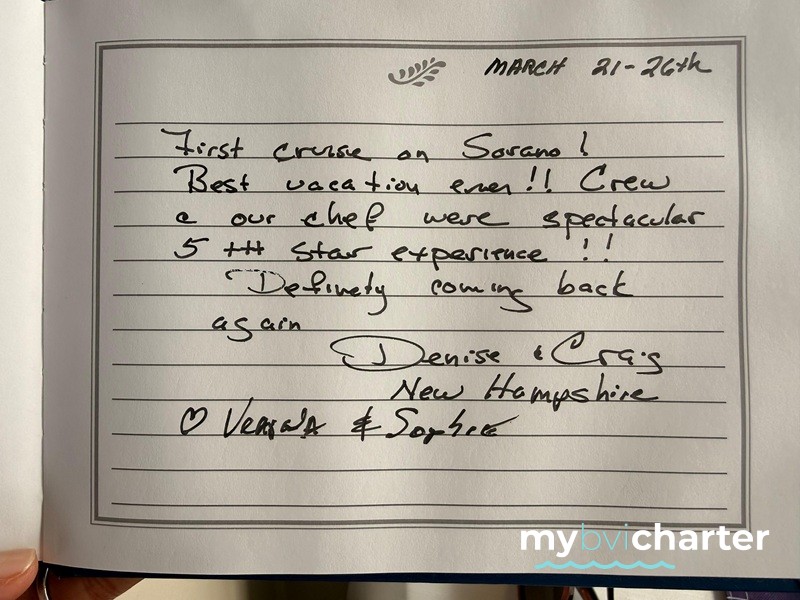 MARCH 21-26th
First cruise on Sorano!
Best vacation ever!! Crew
& our chef were spectacular
5 +++ star experience!!
Definety coming back
again
Denise & Craig
New Hampshire
♡ & Sophie
mybvicharter